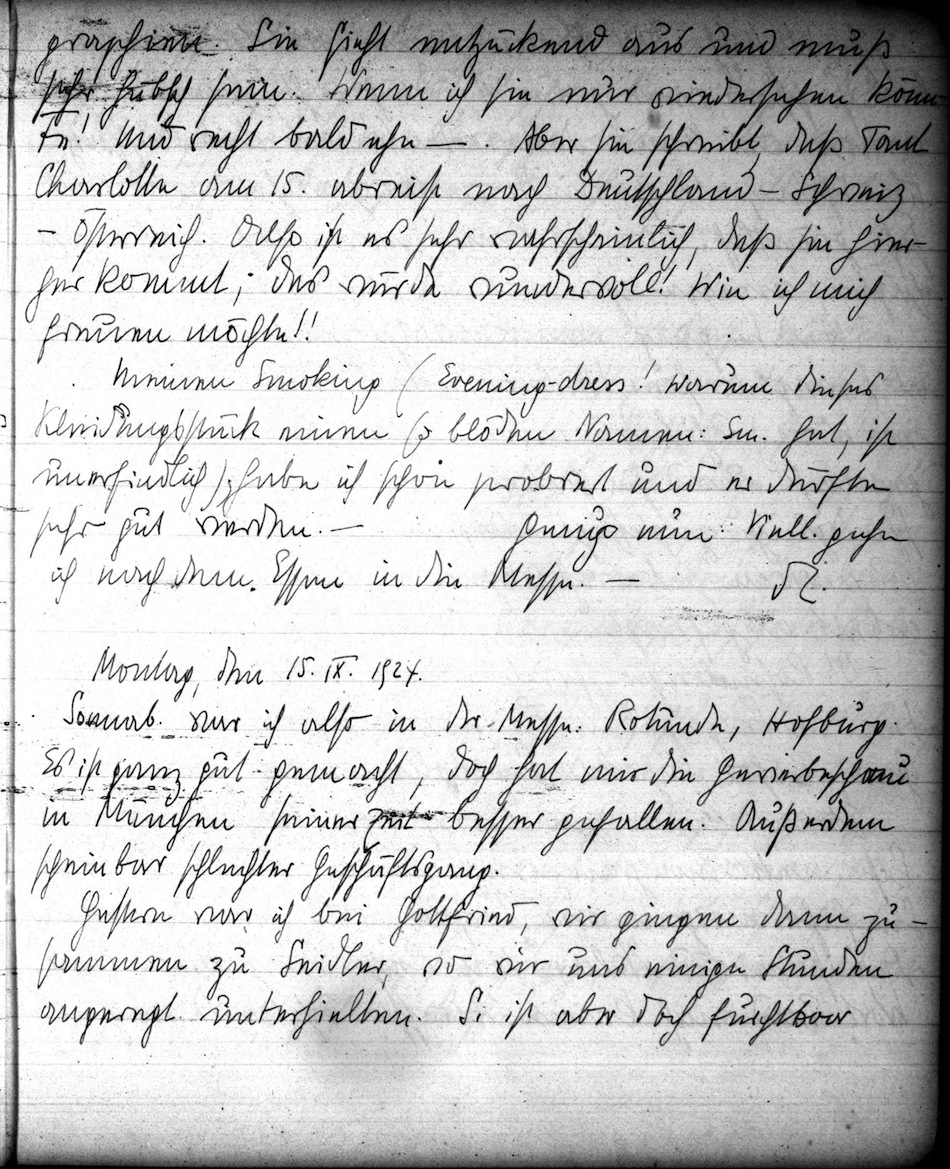 graphieen. Sie sieht entzückend aus und muß
sehr hübsch sein. Wenn ich sie nur wiedersehen könn-
te! Und recht bald ehe —. Aber sie schreibt, daß Tant
Charlotte am 15. abreist nach Deutschland – Schweiz
– Österreich. Also ist es sehr wahrscheinlich, daß sie hier-
her kommt; das würde wundervoll! Wie ich mich
freuen möchte!!
Meinen Smoking (Evening-dress! warum dieses
Kleidungsstück einen so blöden Namen: Sm. hat, ist
unerfindlich); habe ich schon probiert und er dürfte
sehr gut werden. — Genug nun: Viell. gehe
ich nach dem Essen in die Messe. —
Montag, den 15. IX. 1924.
Sonnab. war ich also in der Messe. Rotunde, Hofburg.
Es ist ganz gut gemacht, doch hat mir die Gewerbeschau
in München seinerzeit besser gefallen. Außerdem
scheinbar schlechter Geschäftsgang.
Gestern war ich bei Gottfried, wir gingen dann zu-
sammen zu Seidler, wo wir uns einige Stunden
angeregt unterhielten. S. ist aber doch furchtbar